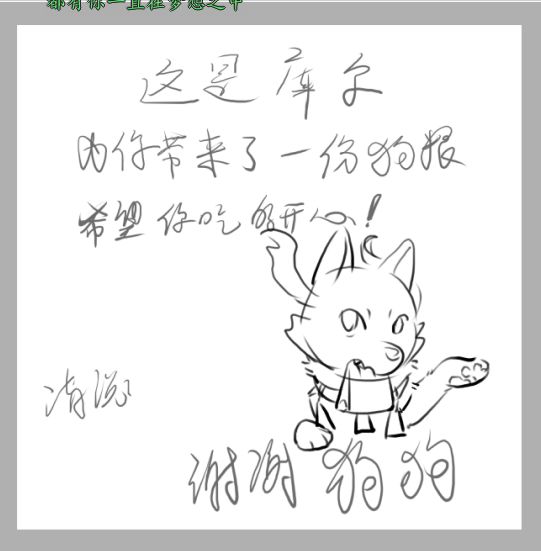 都有你一直在梦想之中
这是库尔
为你带来了一份狗粮
希望你吃的开心！
请说
谢谢狗狗